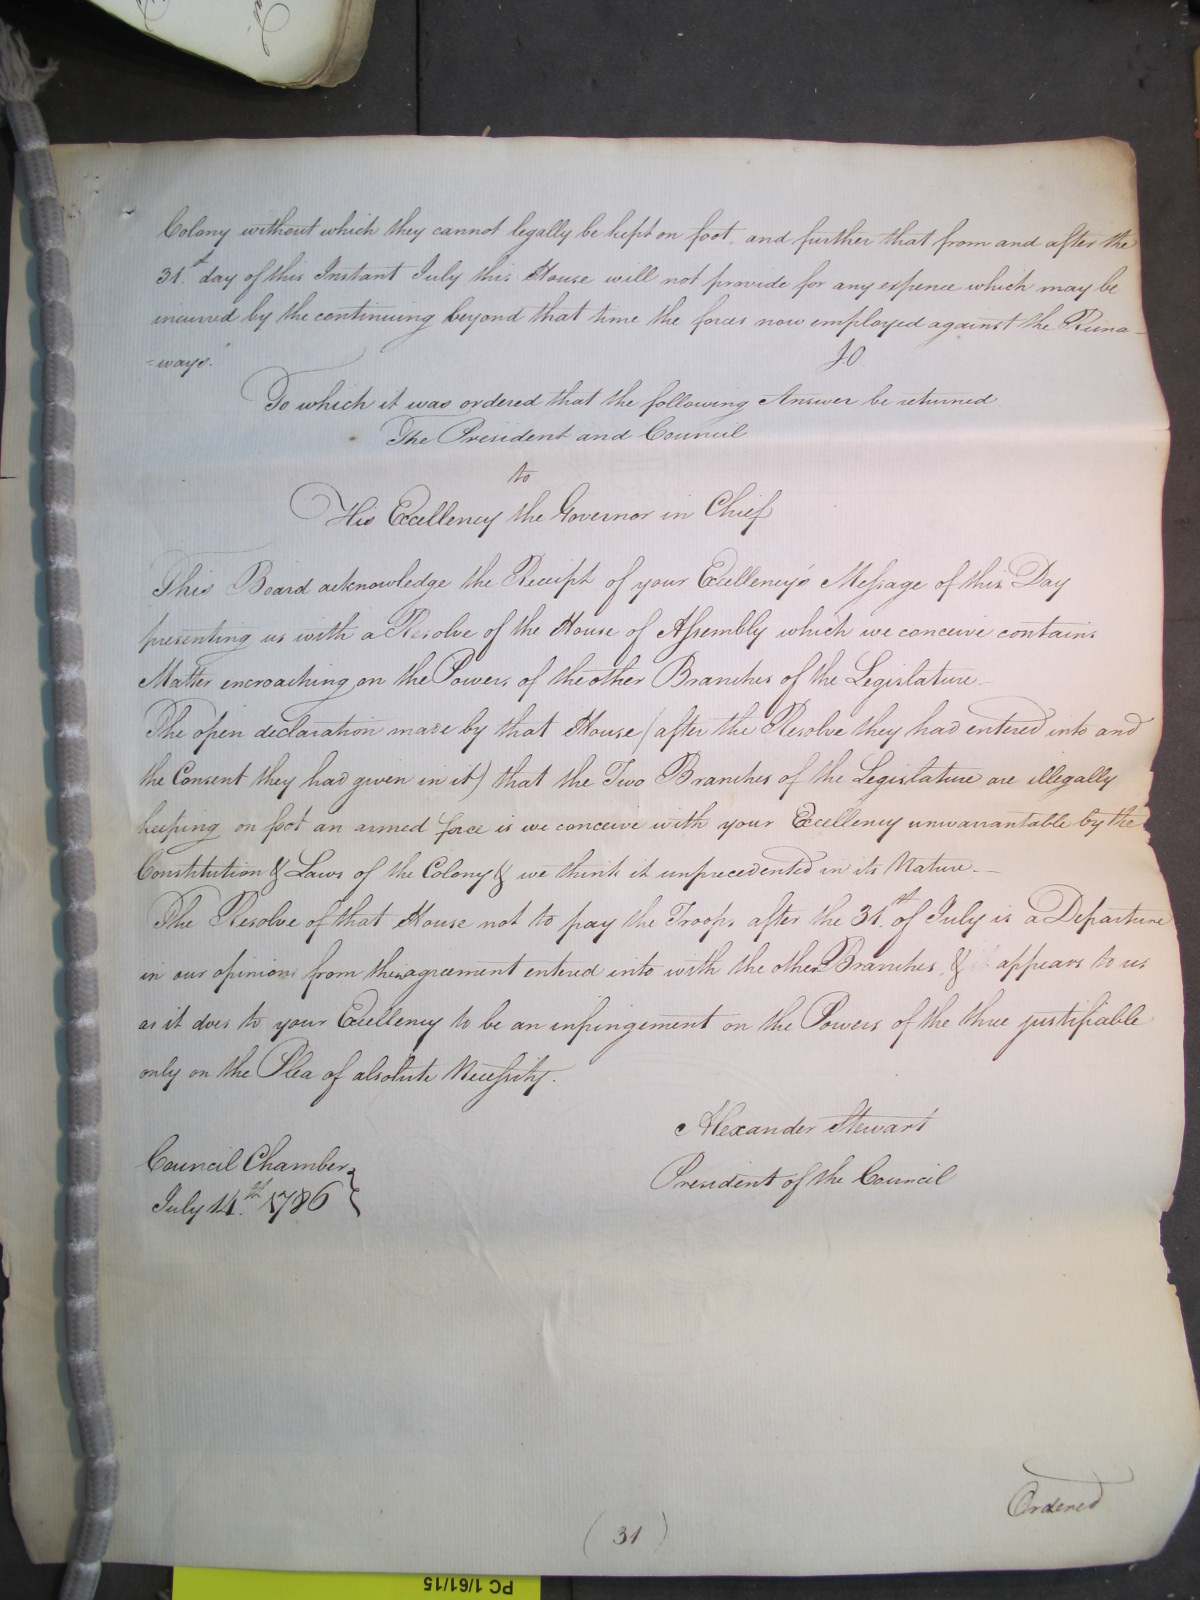 Colony without which they cannot legally be kept on foot, and further that from and after the
31st day of this Instant July this House will not provide for any expence which may be
incurred by the continuing beyond that time the forces now employed against the Runa-
=ways."
To which it was ordered that the following Answer be returned
The President and Council
to
His Excellency the Governor in Chief
This Board acknowledge the Receipt of your Excellency's Message of this Day
presenting us with a Resolve of the House of Assembly which we conceive contains
Matter encroaching on the Powers of the other Branches of the Legislature_
The open declaration made by that House (after the Resolve they had entered into and
the Consent they had given in it) that the Two Branches of the Legislature are illegally
keeping on foot an armed force is we conceive with your Excellency unwarrantable by the
Constitution & Laws of the Colony & we think it unprecedented in its Nature._
The Resolve of that House not to pay the Troops after the 31st of July is a Departure
in our opinions from their agreement entered into with the other Branches, & appears to us
as it does to your Excellency to be an infringement on the Powers of the three justifiable
only on the Plea of absolute Necessity.
Alexander Stewart
President of the Council
Council Chamber
July 14th 1786
Ordered
(31)
PC 1/61/15